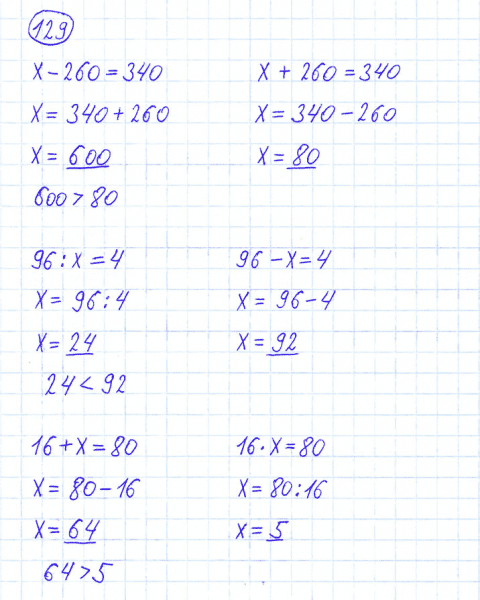 129
x - 260 = 340    x + 260 = 340
x = 340 + 260    x = 340 - 260
x = 600    x = 80
600 > 80
96 : x = 4    96 - x = 4
x = 96 : 4    x = 96 - 4
x = 24    x = 92
24 < 92
16 + x = 80    16 · x = 80
x = 80 - 16    x = 80 : 16
x = 64    x = 5
64 > 5